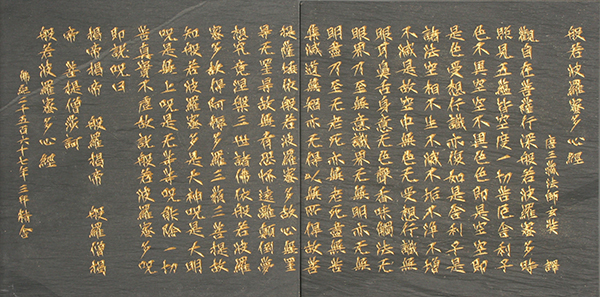 般若波羅蜜多心經
唐三藏法師玄奘 譯
觀自在菩薩行深般若波羅蜜多時
照見五蘊皆空度一切苦厄舍利子
色不異空空不異色色即是空空即
是色受想行識亦復如是舍利子是
諸法空相不生不滅不垢不淨不增
不減是故空中无色無受想行識無
眼耳鼻舌身意无色聲香味觸法无
眼界乃至無意識界無無明亦無無
明盡乃至无老死亦无老死盡無苦
集滅道無智亦无得以無所得故菩
提薩埵依般若波羅蜜多故心無罣
礙无罣礙故無有恐怖遠離顛倒夢
想究竟涅槃三世諸佛依般若波羅
蜜多故得阿耨多羅三藐三菩提故
知般若波羅蜜多是大神呪是大明
呪是无上呪是无等等呪能除一切
苦真實不虛故說般若波羅蜜多呪
即說呪曰
揭帝揭帝 般羅揭帝 般羅僧揭
帝 菩提僧莎訶
般若波羅蜜多心經
佛紀二千五百六十七年三師